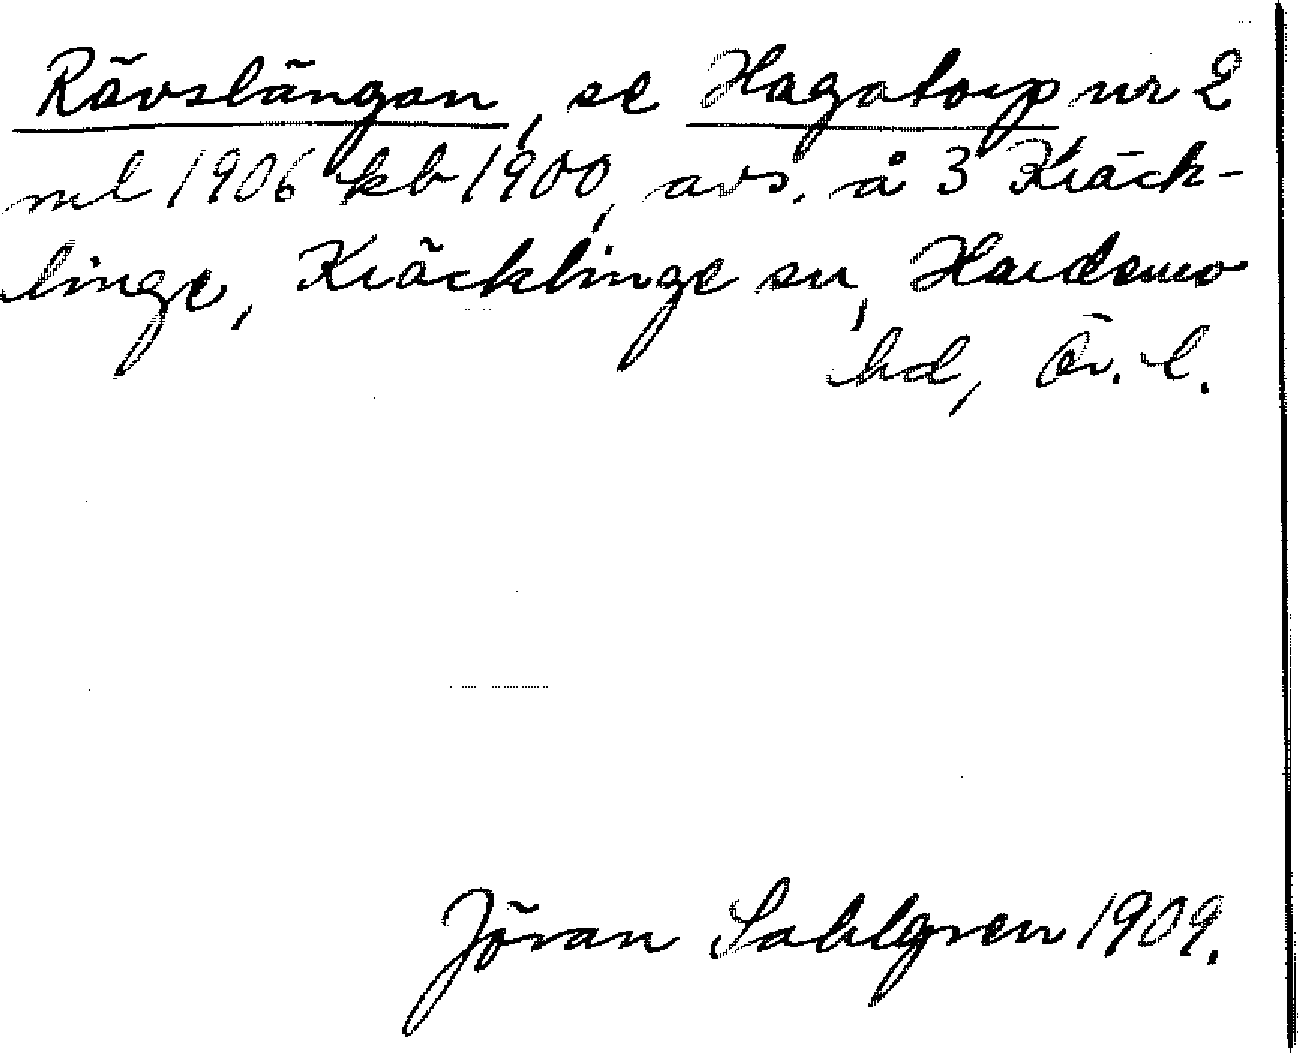 Rävslängan, se Hagatorp nr 2
ml 1906 kb 1900, avs. å 3 Kräck-
linge, Kräcklinge sn, Hardemo
hd, Ör. l.
Jöran Sahlgren 1909.